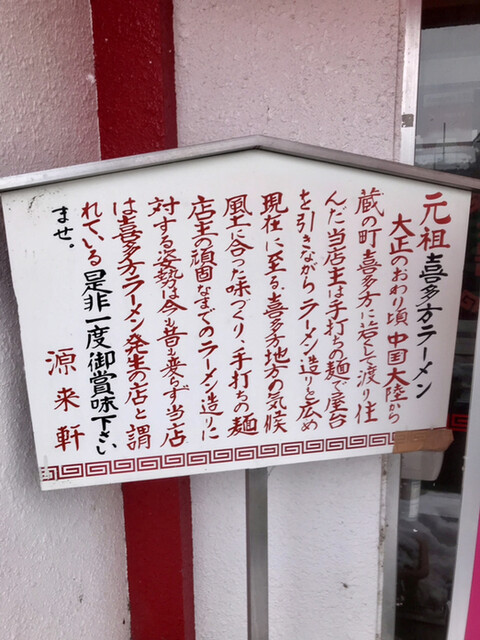 元祖喜多方ラーメン
大正のおわり頃中国大陸から
蔵の町喜多方に若くして渡り住
んだ当店主は手打ちの麺で屋台
を引きながらラーメン造りを広め
現在に至る。喜多方地方の気候
風土に合った味づくり、手打ちの麺
店主の頑固なまでのラーメン造りに
対する姿勢は今も昔も変らず当店
は喜多方ラーメン発生の店と謂
れている是非一度御賞味下さい
ませ。
源来軒